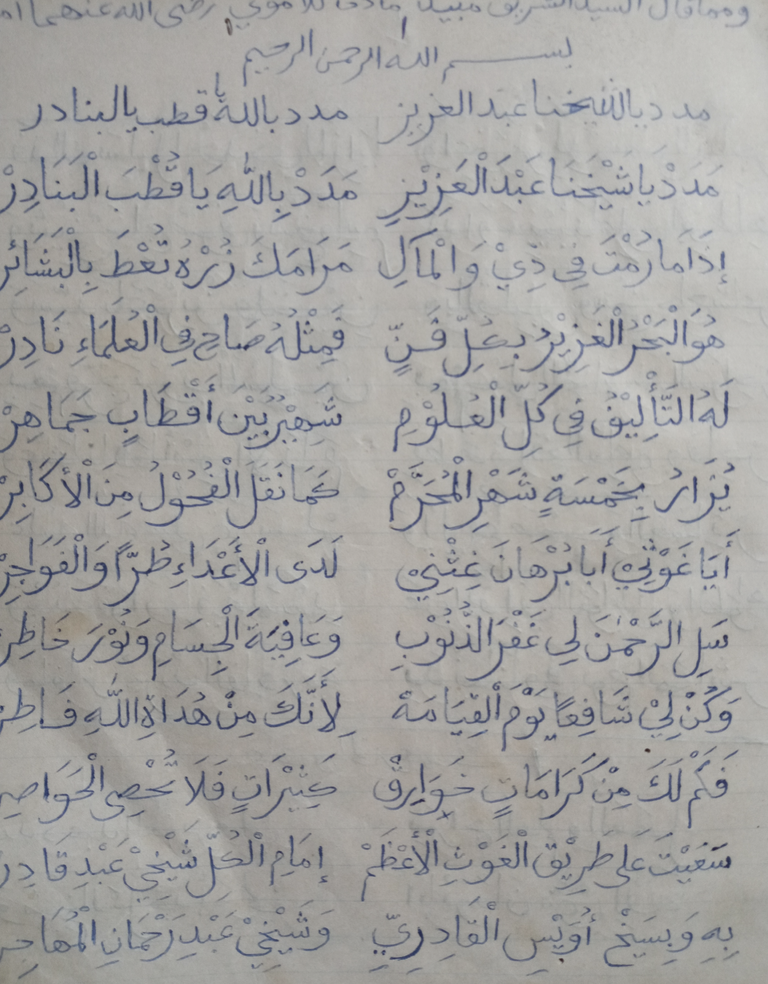 ومما قال السيد الشريف رضي الله عنهما
بسم الله الرحمن الرحيم
مدد يا شيخنا عبد العزيز مدد بالله يا قطب البنادر
مَدَدْ يَا شَيْخَنَا عَبْدَ الْعَزِيْزِ مَدَدْ بِاللّٰهِ يَا قُطْبَ الْبَنَادِرْ
إِذَا مَا رُمْتَ فِي ذِيْ وَالْمَآلِ مَرَامَكَ زُرْهُ تُعْطَ بِالْبَشَائِرْ
هُوَ الْبَحْرُ الْغَزِيْرُ بِكُلِّ فَنٍّ فَمِثْلُهُ صَاحِ فِي الْعُلَمَاءِ نَادِرْ
لَهُ التَّأْلِيْفُ فِي كُلِّ الْعُلُوْمِ شَهِيْرٌ بَيْنَ أَقْطَابٍ جَمَاهِرْ
يُزَارُ بِخَمْسَةٍ شَهْرِ الْمُحَرَّمْ كَمَا نَقَلَ الْفُحُوْلُ مِنَ الْأَكَابِرْ
أَيَا غَوْثِيْ أَبَا بُرْهَانَ غِثْنِيْ لَدَى الْأَعْدَاءِ طُرًّا وَالْفَوَاجِرْ
سَلِ الرَّحْمٰنَ لِي غَفْرَ الذُّنُوْبِ وَعَافِيَةَ الْجِسَامِ وَنُوْرَ خَاطِرْ
وَكُنْ لِيْ شَافِعًا يَوْمَ الْقِيَامَهْ لِأَنَّكَ مِنْ هُدَاةِ اللّٰهِ فَاطِرْ
فَكَمْ لَكَ مِنْ كَرَامَاتٍ خَوَارِقْ كَثِيْرَاتٍ فَلَا تُحْصِى الْحَوَاصِرْ
سَعَيْتَ عَلَى طَرِيْقِ الْغَوْثِ الْأَعْظَمْ إِمَامِ الْكُلِّ شَيْخِيْ عَبْدِ قَادِرْ
بِهِ وَبِسَيْخْ أُوَيْسِ الْقَادِرِيِّ وَشَيْخِيْ عَبْدِ رَحْمَانِ الْمُهَاجِرْ